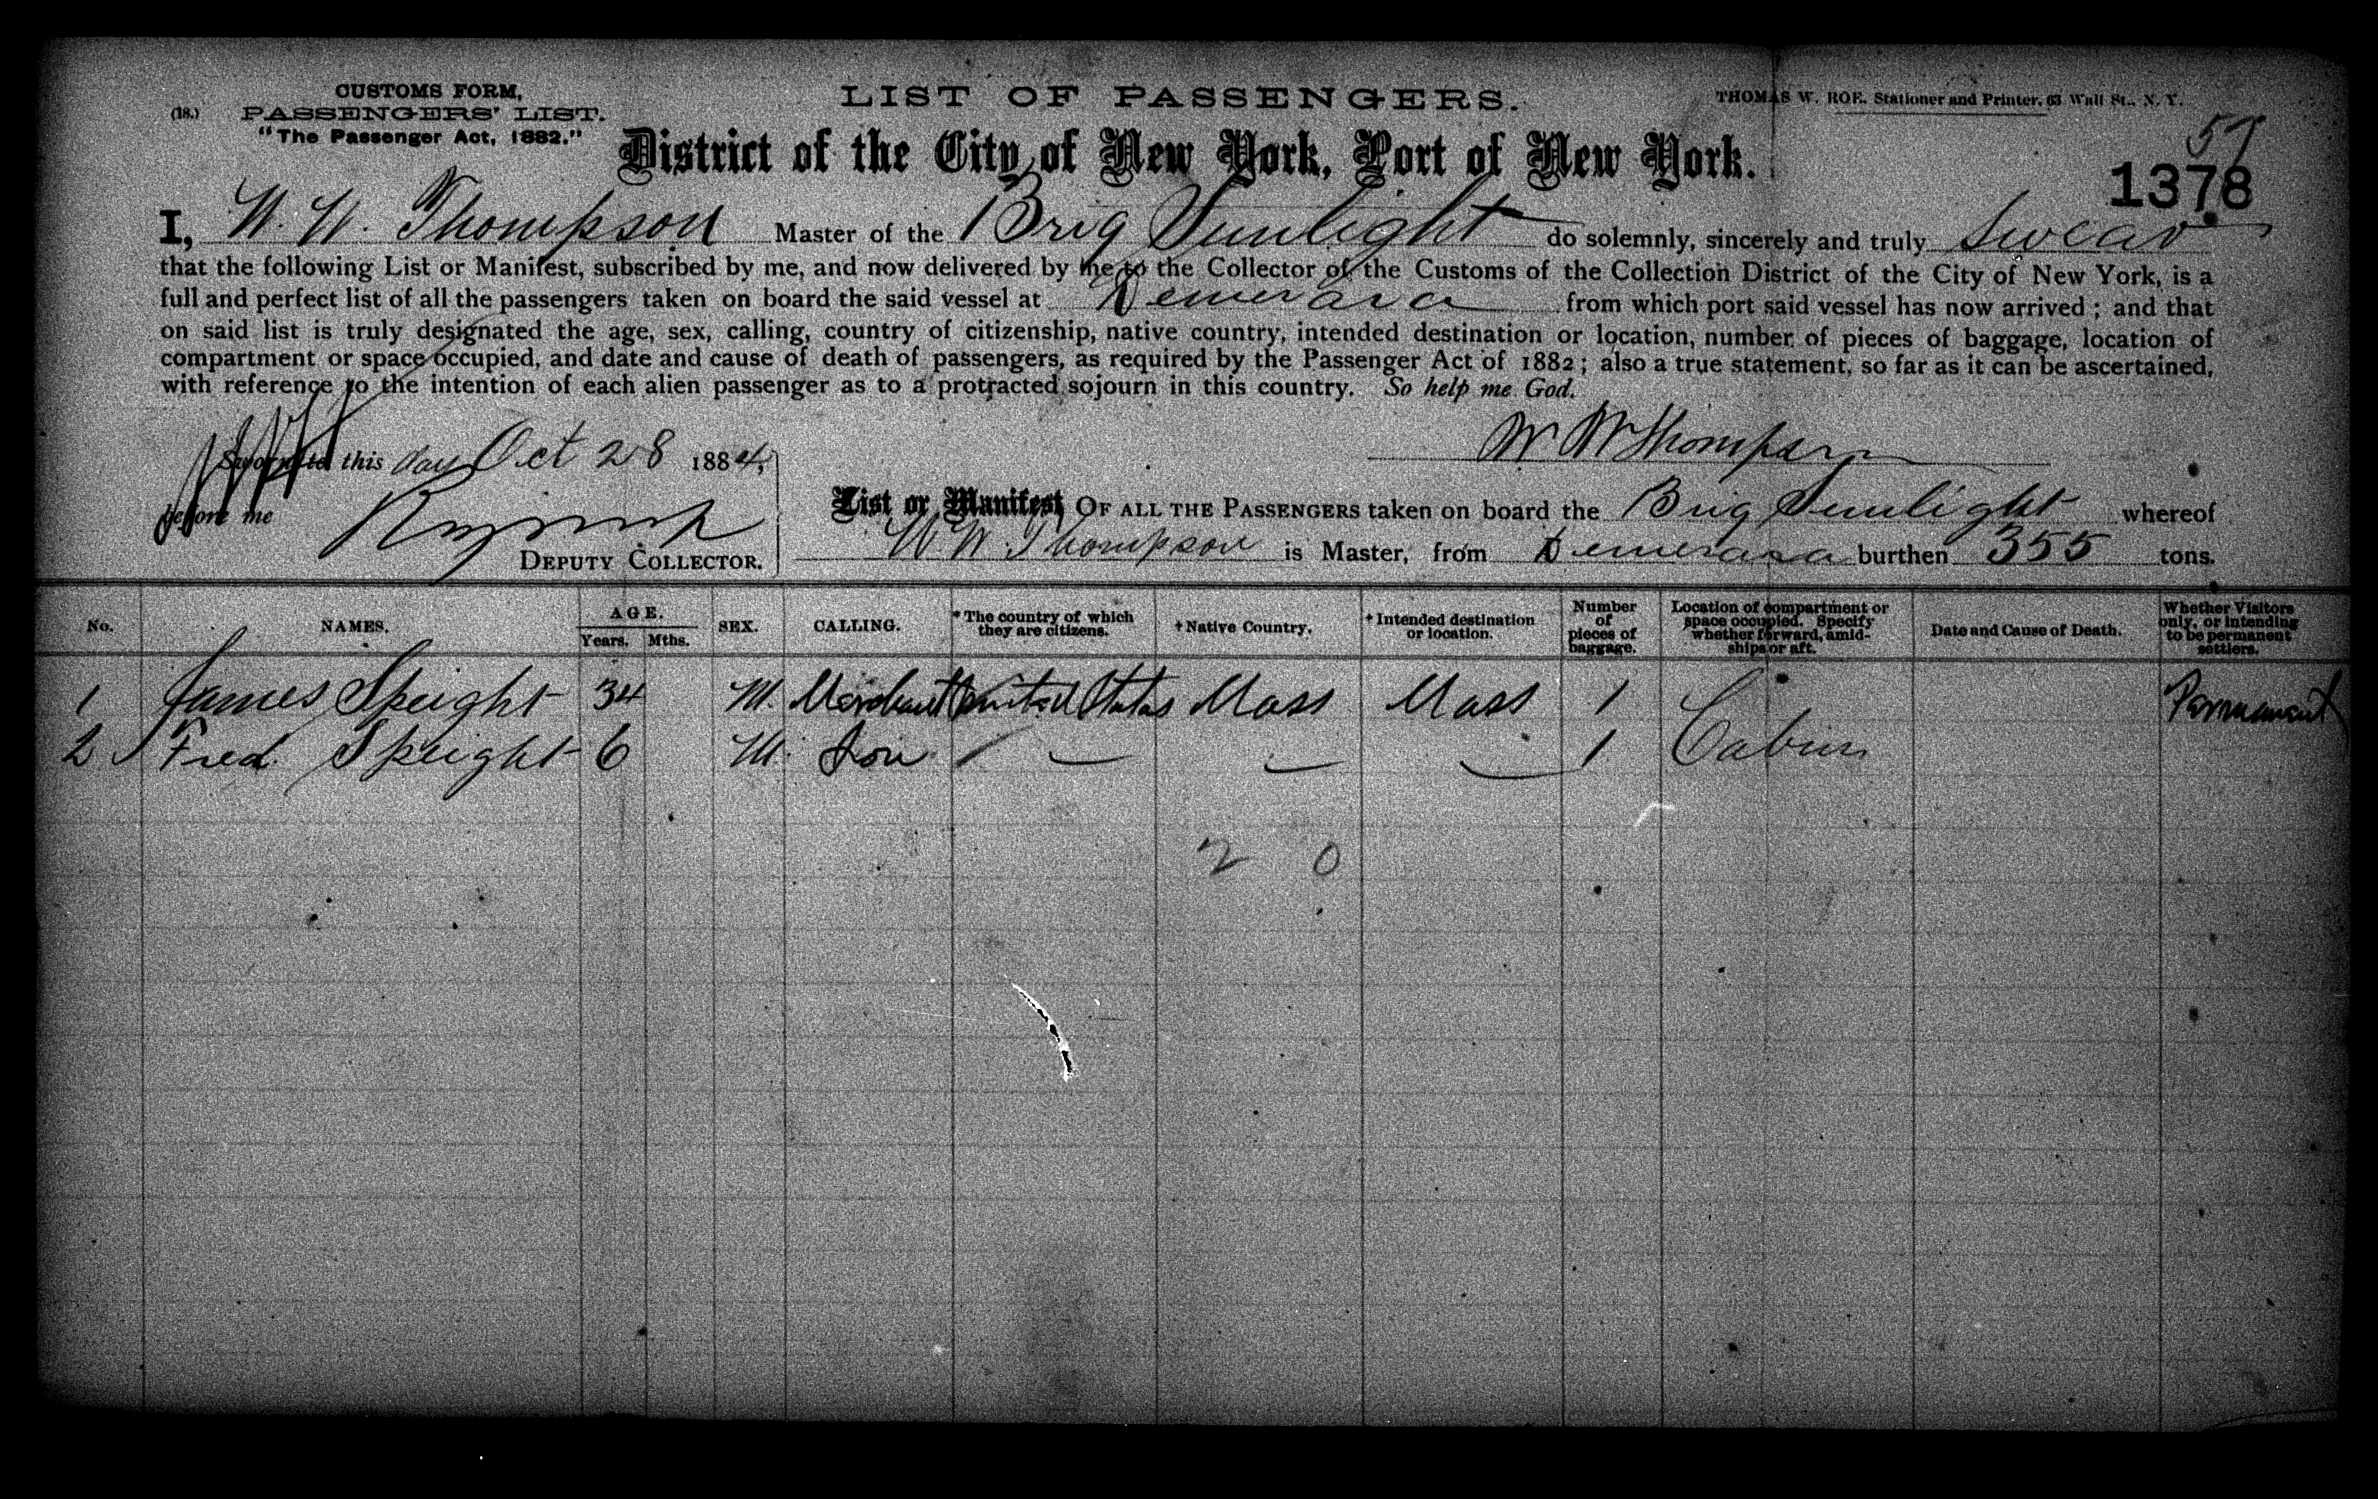 CUSTOMS FORM,
(18.) PASSENGERS' LIST.
"The Passenger Act, 1882."
LIST OF PASSENGERS.
THOMAS W. ROE. Stationer and Printer, 63 Wall St., N. Y.
57
District of the City of New York, Port of New York.
1378
I, W. W. Thompson Master of the Brig Sunlight do solemnly, sincerely and truly Swear
that the following List or Manifest, subscribed by me, and now delivered by me to the Collector of the Customs of the Collection District of the City of New York, is a
full and perfect list of all the passengers taken on board the said vessel at Demerara from which port said vessel has now arrived; and that
on said list is truly designated the age, sex, calling, country of citizenship, native country, intended destination or location, number of pieces of baggage, location of
compartment or space occupied, and date and cause of death of passengers, as required by the Passenger Act of 1882; also a true statement, so far as it can be ascertained,
with reference to the intention of each alien passenger as to a protracted sojourn in this country. So help me God.
Sworn to this day Oct 28 1884,
W W Thompson
before me
DEPUTY COLLECTOR.
List or Manifest OF ALL THE PASSENGERS taken on board the Brig Sunlight whereof
W. W. Thompson is Master, from Demerara burthen 355 tons.
No. NAMES. AGE. Years. Mths. SEX. CALLING. *The country of which they are citizens. †Native Country. †Intended destination or location. Number of pieces of baggage. Location of compartment or space occupied. Specify whether forward, amidships or aft. Date and Cause of Death. Whether Visitors only, or intending to be permanent settlers.
1 James Speight 34 M. Merchant United States Mass Mass 1 Permanent
2 Fred. Speight 6 M. Son 1 Cabin
2 0